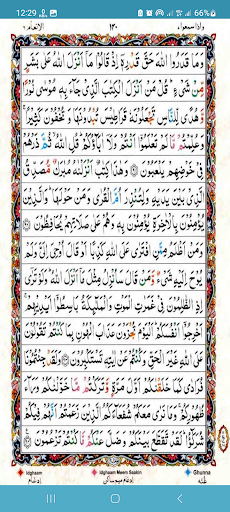 12:29
58%
الانعام ٦
١٣٠
واذا سمعوا ٧
وَ مَا قَدَرُوا اللّٰهَ حَقَّ قَدْرِهٖۤ اِذْ قَالُوْا مَاۤ اَنْزَلَ اللّٰهُ عَلٰی بَشَرٍ
مِّنْ شَیْءٍ ؕ قُلْ مَنْ اَنْزَلَ الْكِتٰبَ الَّذِیْ جَآءَ بِهٖ مُوْسٰی نُوْرًا
وَّ هُدًی لِّلنَّاسِ تَجْعَلُوْنَهٗ قَرَاطِیْسَ تُبْدُوْنَهَا وَ تُخْفُوْنَ كَثِیْرًا ۚ
وَ عُلِّمْتُمْ مَّا لَمْ تَعْلَمُوْۤا اَنْتُمْ وَ لَاۤ اٰبَآؤُكُمْ ؕ قُلِ اللّٰهُ ۙ ثُمَّ ذَرْهُمْ
فِیْ خَوْضِهِمْ یَلْعَبُوْنَ ۝ وَ هٰذَا كِتٰبٌ اَنْزَلْنٰهُ مُبٰرَكٌ مُّصَدِّقُ
الَّذِیْ بَیْنَ یَدَیْهِ وَ لِتُنْذِرَ اُمَّ الْقُرٰی وَ مَنْ حَوْلَهَا ؕ وَ الَّذِیْنَ
یُؤْمِنُوْنَ بِالْاٰخِرَةِ یُؤْمِنُوْنَ بِهٖ وَ هُمْ عَلٰی صَلَاتِهِمْ یُحَافِظُوْنَ ۝
وَ مَنْ اَظْلَمُ مِمَّنِ افْتَرٰی عَلَی اللّٰهِ كَذِبًا اَوْ قَالَ اُوْحِیَ اِلَیَّ وَ لَمْ
یُوْحَ اِلَیْهِ شَیْءٌ وَّ مَنْ قَالَ سَاُنْزِلُ مِثْلَ مَاۤ اَنْزَلَ اللّٰهُ ؕ وَ لَوْ تَرٰۤی
اِذِ الظّٰلِمُوْنَ فِیْ غَمَرٰتِ الْمَوْتِ وَ الْمَلٰٓئِكَةُ بَاسِطُوْۤا اَیْدِیْهِمْ ۚ
اَخْرِجُوْۤا اَنْفُسَكُمْ ؕ اَلْیَوْمَ تُجْزَوْنَ عَذَابَ الْهُوْنِ بِمَا كُنْتُمْ تَقُوْلُوْنَ
عَلَی اللّٰهِ غَیْرَ الْحَقِّ وَ كُنْتُمْ عَنْ اٰیٰتِهٖ تَسْتَكْبِرُوْنَ ۝ وَ لَقَدْ جِئْتُمُوْنَا
فُرَادٰی كَمَا خَلَقْنٰكُمْ اَوَّلَ مَرَّةٍ وَّ تَرَكْتُمْ مَّا خَوَّلْنٰكُمْ وَرَآءَ
ظُهُوْرِكُمْ ۚ وَ مَا نَرٰی مَعَكُمْ شُفَعَآءَكُمُ الَّذِیْنَ زَعَمْتُمْ اَنَّهُمْ فِیْكُمْ
شُرَكٰٓؤُا ؕ لَقَدْ تَّقَطَّعَ بَیْنَكُمْ وَ ضَلَّ عَنْكُمْ مَّا كُنْتُمْ تَزْعُمُوْنَ ۝
Idghaam Idghaam Meem Saakin Ghunna
ادغام ادغام میم ساکن غنه